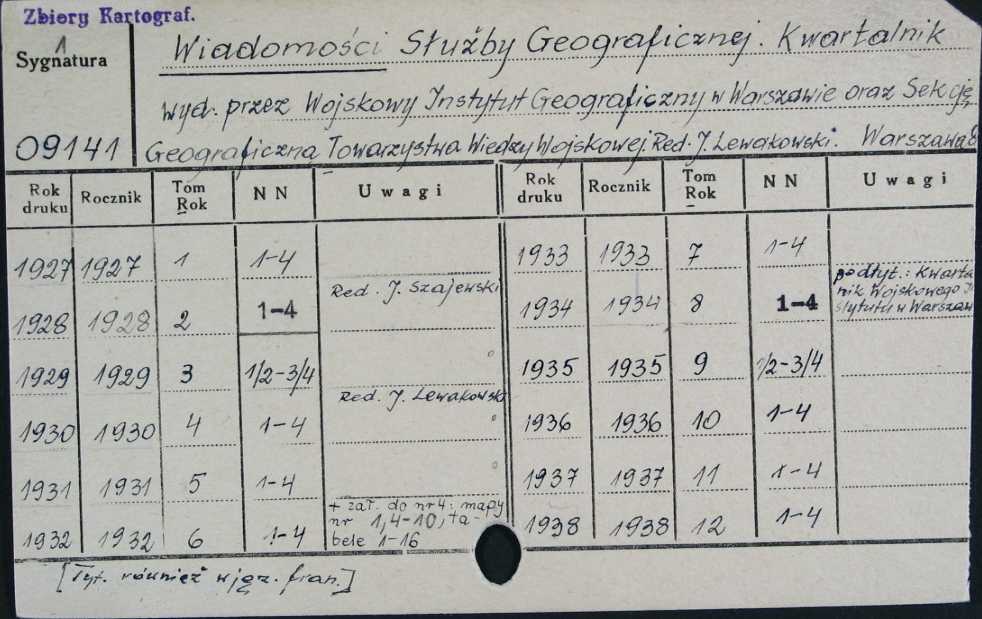 Zbiory Kartograf.
Sygnatura
1
09141
Wiadomości Służby Geograficznej. Kwartalnik
wyd. przez Wojskowy Instytut Geograficzny w Warszawie oraz Sekcję
Geograficzna Towarzystwa Wiedzy Wojskowej Red. J. Lewakowski. Warszawa
Rok druku Rocznik Tom Rok N N Uwagi Rok druku Rocznik Tom Rok N N Uwagi
1927 1927 1 1-4 1933 1933 7 1-4
1928 1928 2 1-4 Red. J. Szajewski 1934 1934 8 1-4 podtyt.: Kwarta
nik Wojskowego
stytutu w Warszaw
1929 1929 3 1/2-3/4 1935 1935 9 1/2-3/4
1930 1930 4 1-4 Red. J. Lewakowski 1936 1936 10 1-4
1931 1931 5 1-4 1937 1937 11 1-4
1932 1932 6 1-4 + zał. do nr 4: mapy
nr 1,4-10, ta-
bele 1-16
1938 1938 12 1-4
[Tyt. również w jęz. fran.]